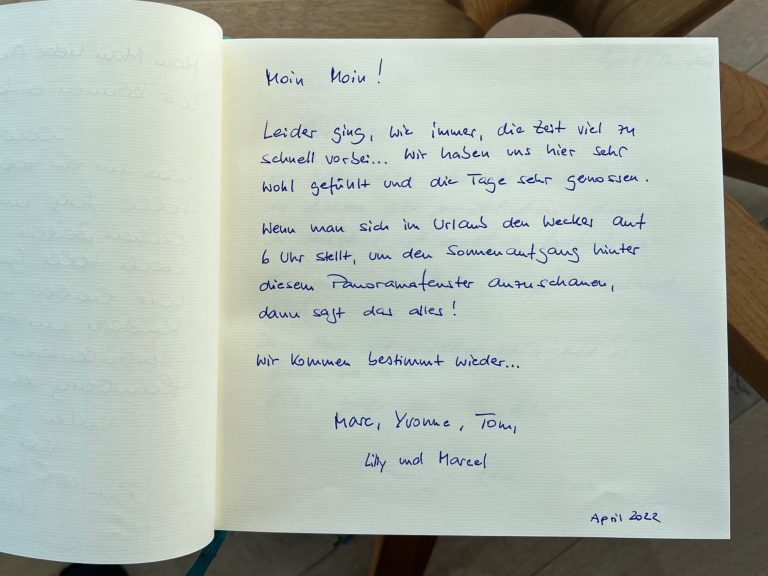 Moin Moin!
Leider ging, wie immer, die Zeit viel zu
schnell vorbei... Wir haben uns hier sehr
wohl gefühlt und die Tage sehr genossen.
Wenn man sich im Urlaub den Wecker auf
6 Uhr stellt, um den Sonnenaufgang hinter
diesem Panoramafenster anzuschauen,
dann sagt das alles!
Wir kommen bestimmt wieder...
Marc, Yvonne, Tom,
Lilly und Marcel
April 2022